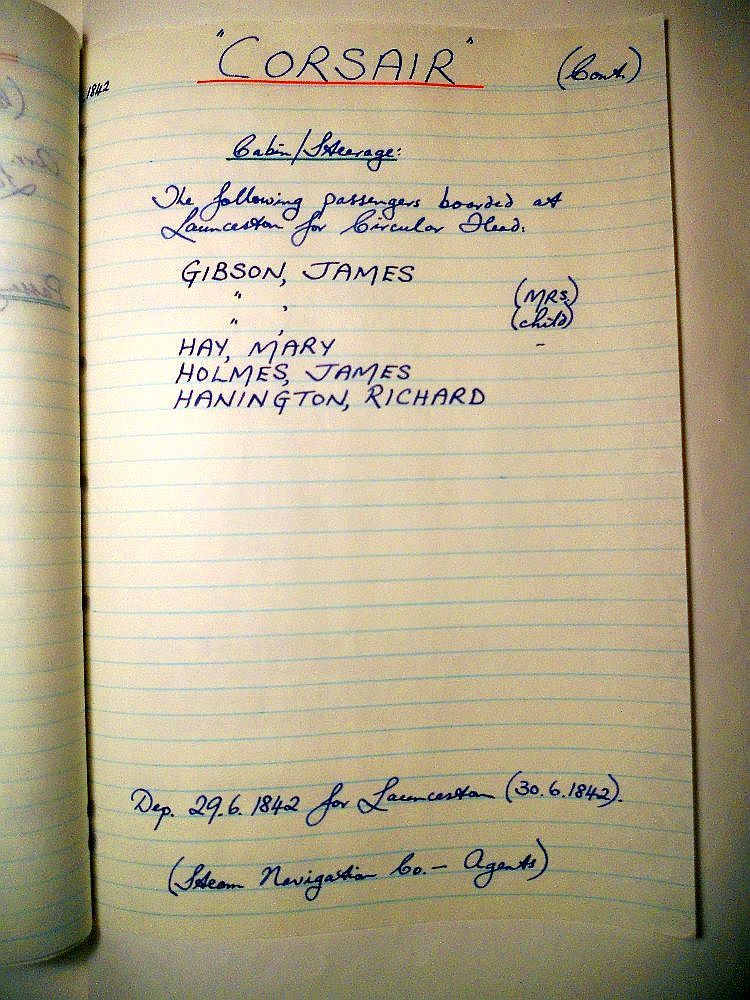 "CORSAIR" (Cont.)
1842
Cabin/Steerage:
The following passengers boarded at
Launceston for Circular Head:
GIBSON, JAMES
" , (MRS.)
" , (child)
HAY, MARY -
HOLMES, JAMES
HANINGTON, RICHARD
Dep. 29.6.1842 for Launceston (30.6.1842).
(Steam Navigation Co. - Agents)